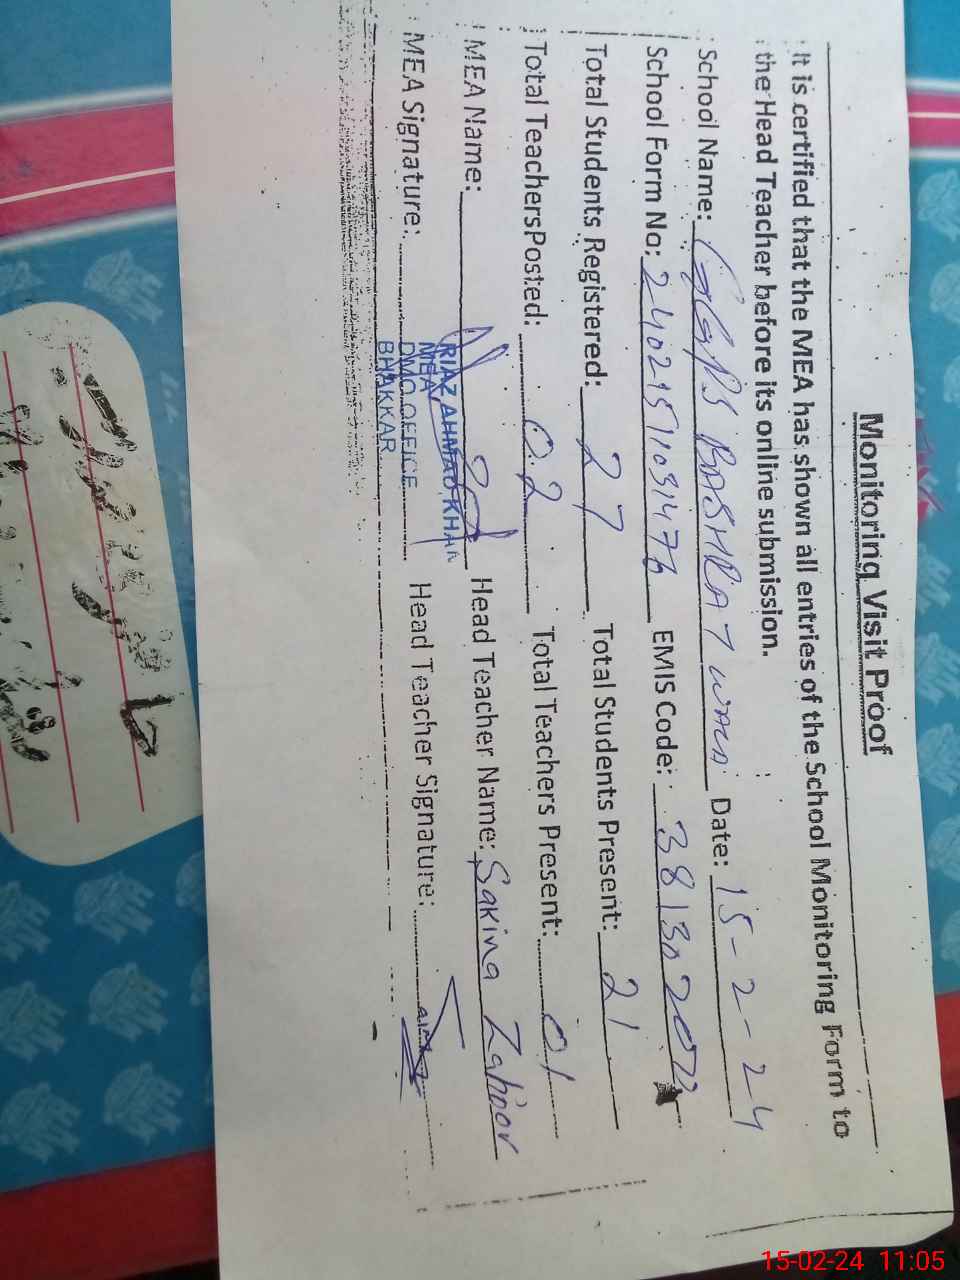 Monitoring Visit Proof
It is certified that the MEA has shown all entries of the School Monitoring Form to
the Head Teacher before its online submission.
School Name: GGPS BASHRAT WALA Date: 15-2-24
School Form No: EMIS Code:
Total Students Registered: 27 Total Students Present: 21
Total TeachersPosted: 02 Total Teachers Present: 01
MEA Name: Head Teacher Name: Sakina Zahoor
MEA Signature: Head Teacher Signature:
RIAZ AHMAD KHAN
MEA
DMO OFFICE
BHAKKAR
15-02-24 11:05